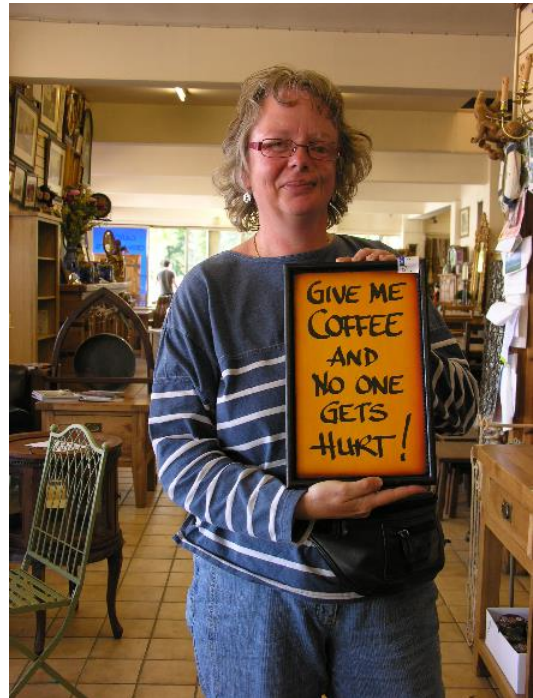 GIVE ME
COFFEE
AND
NO ONE
GETS
HURT!